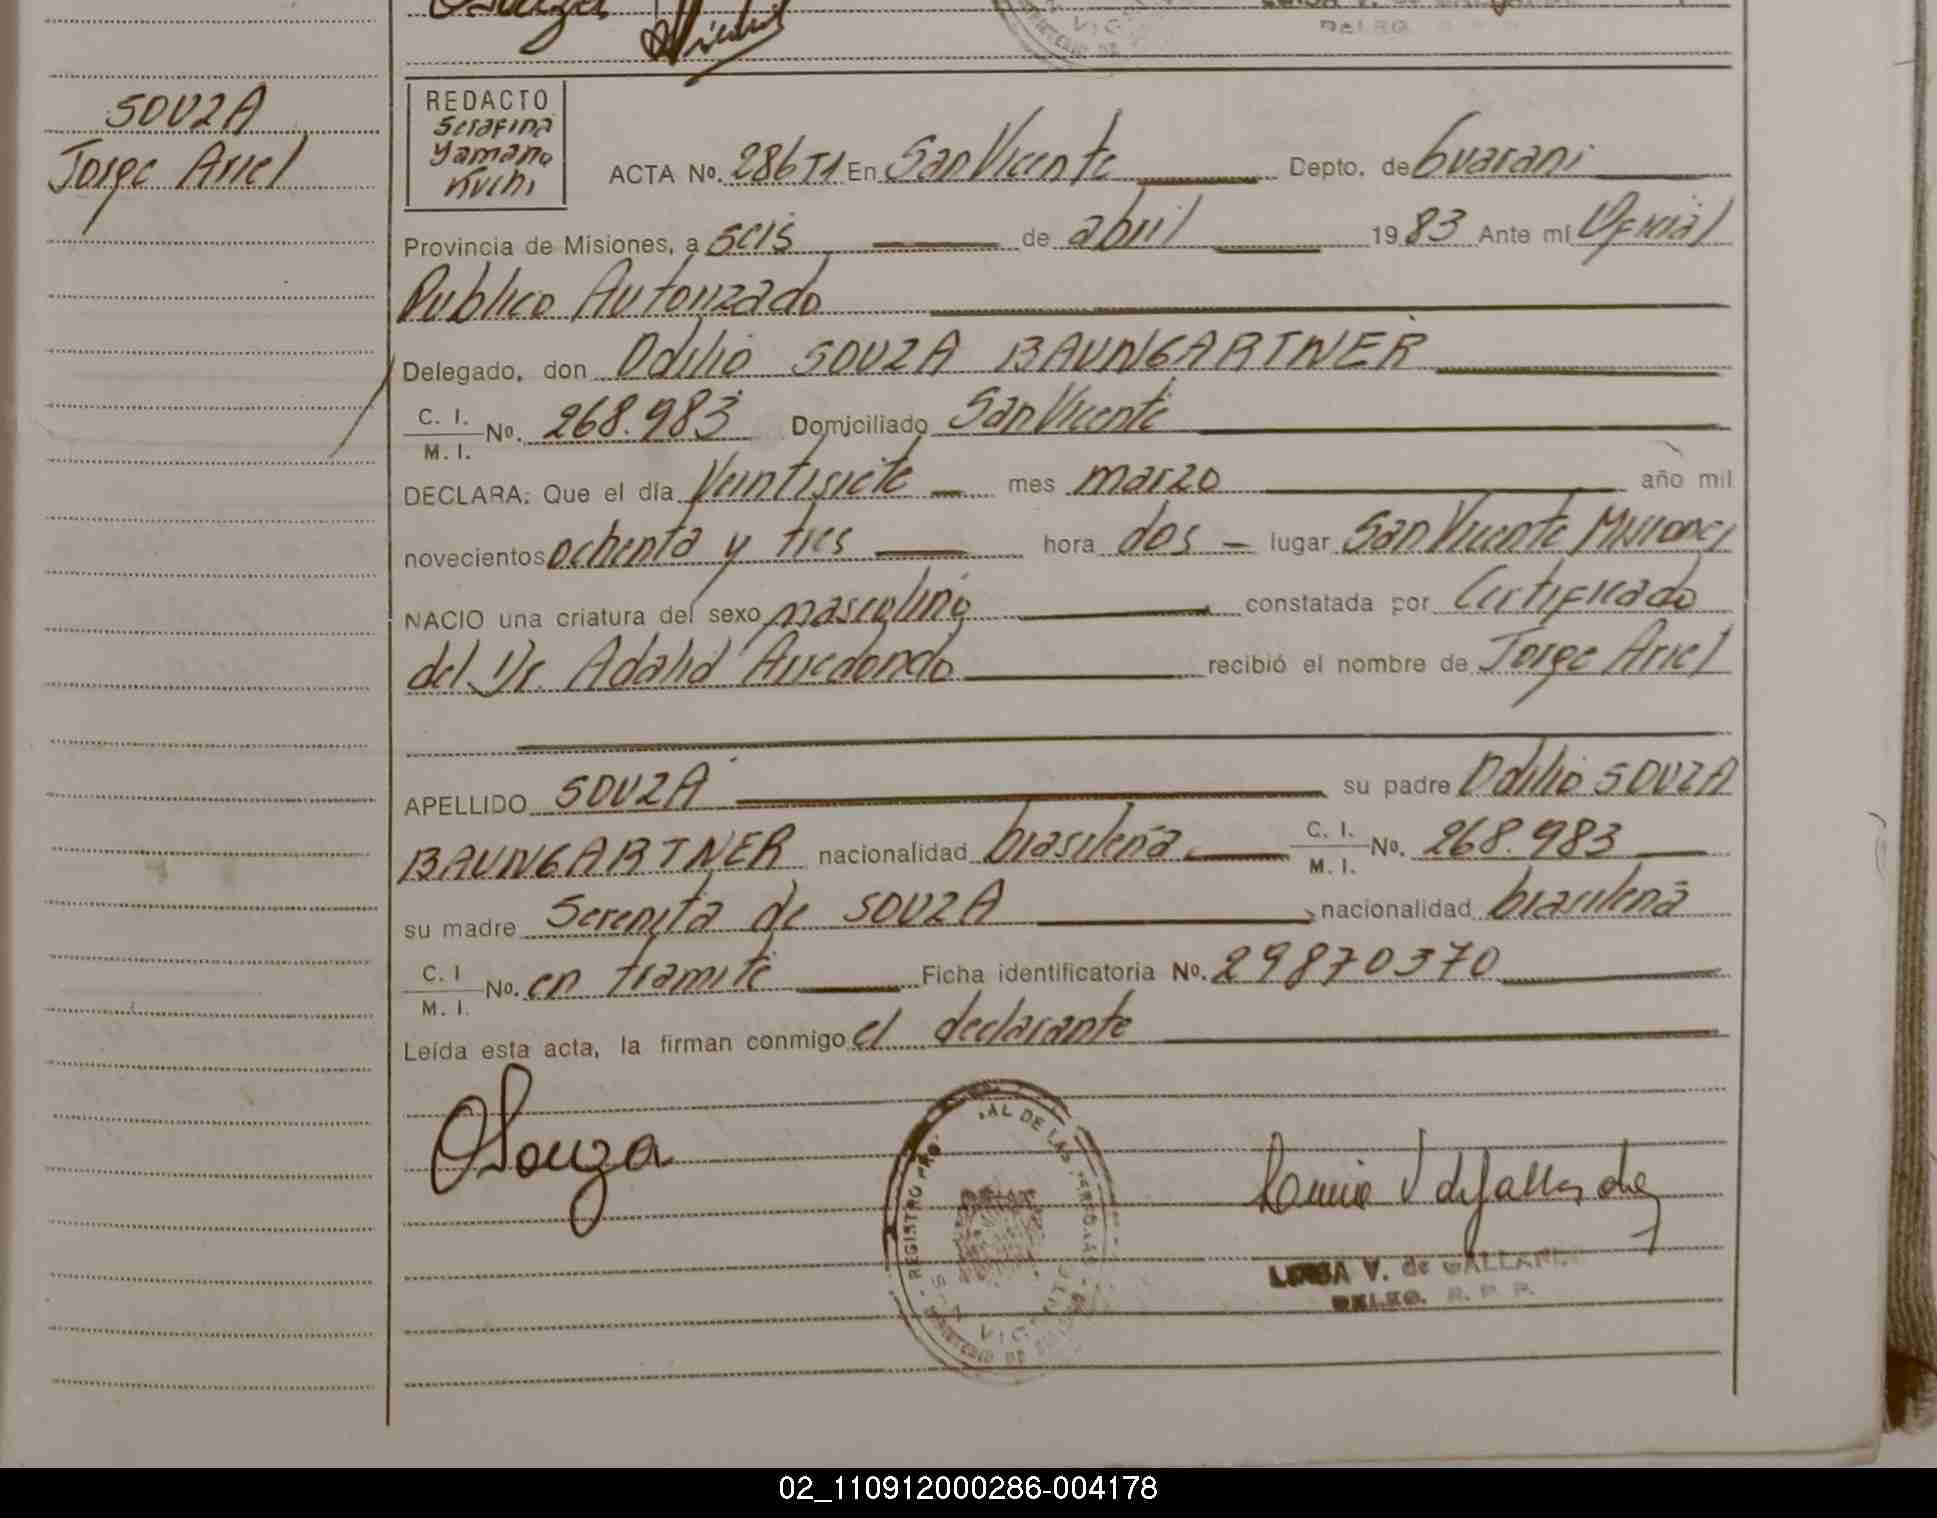 Souza
VIC
DELEG.
SOUZA
Jorge Ariel
REDACTO
Serafina
Yamano
Kuchi
ACTA No. 286 T1 En San Vicente Depto. de Guarani
Provincia de Misiones, a seis de abril 1983 Ante mí Oficial
Publico Autorizado
Delegado, don Odilio SOUZA BAUNGARTNER
C. I. / M. I. No. 268.983 Domiciliado San Vicente
DECLARA: Que el día Veintisiete mes marzo año mil
novecientos ochenta y tres hora dos lugar San Vicente Misiones
NACIO una criatura del sexo masculino constatada por Certificado
del Dr. Adalid Arredondo recibió el nombre de Jorge Ariel
APELLIDO SOUZA su padre Odilio SOUZA
BAUNGARTNER nacionalidad brasileña C. I. / M. I. No. 268.983
su madre Serenita de SOUZA nacionalidad brasileña
C. I / M. I. No. en tramite Ficha identificatoria No. 29870370
Leída esta acta, la firman conmigo el declarante
OSouza
REGISTRO PRO AL DE LAS PERSONAS
VICENTE
MINISTERIO DE
V. de GALLAR
DELEG. R. P. P.
02_110912000286-004178